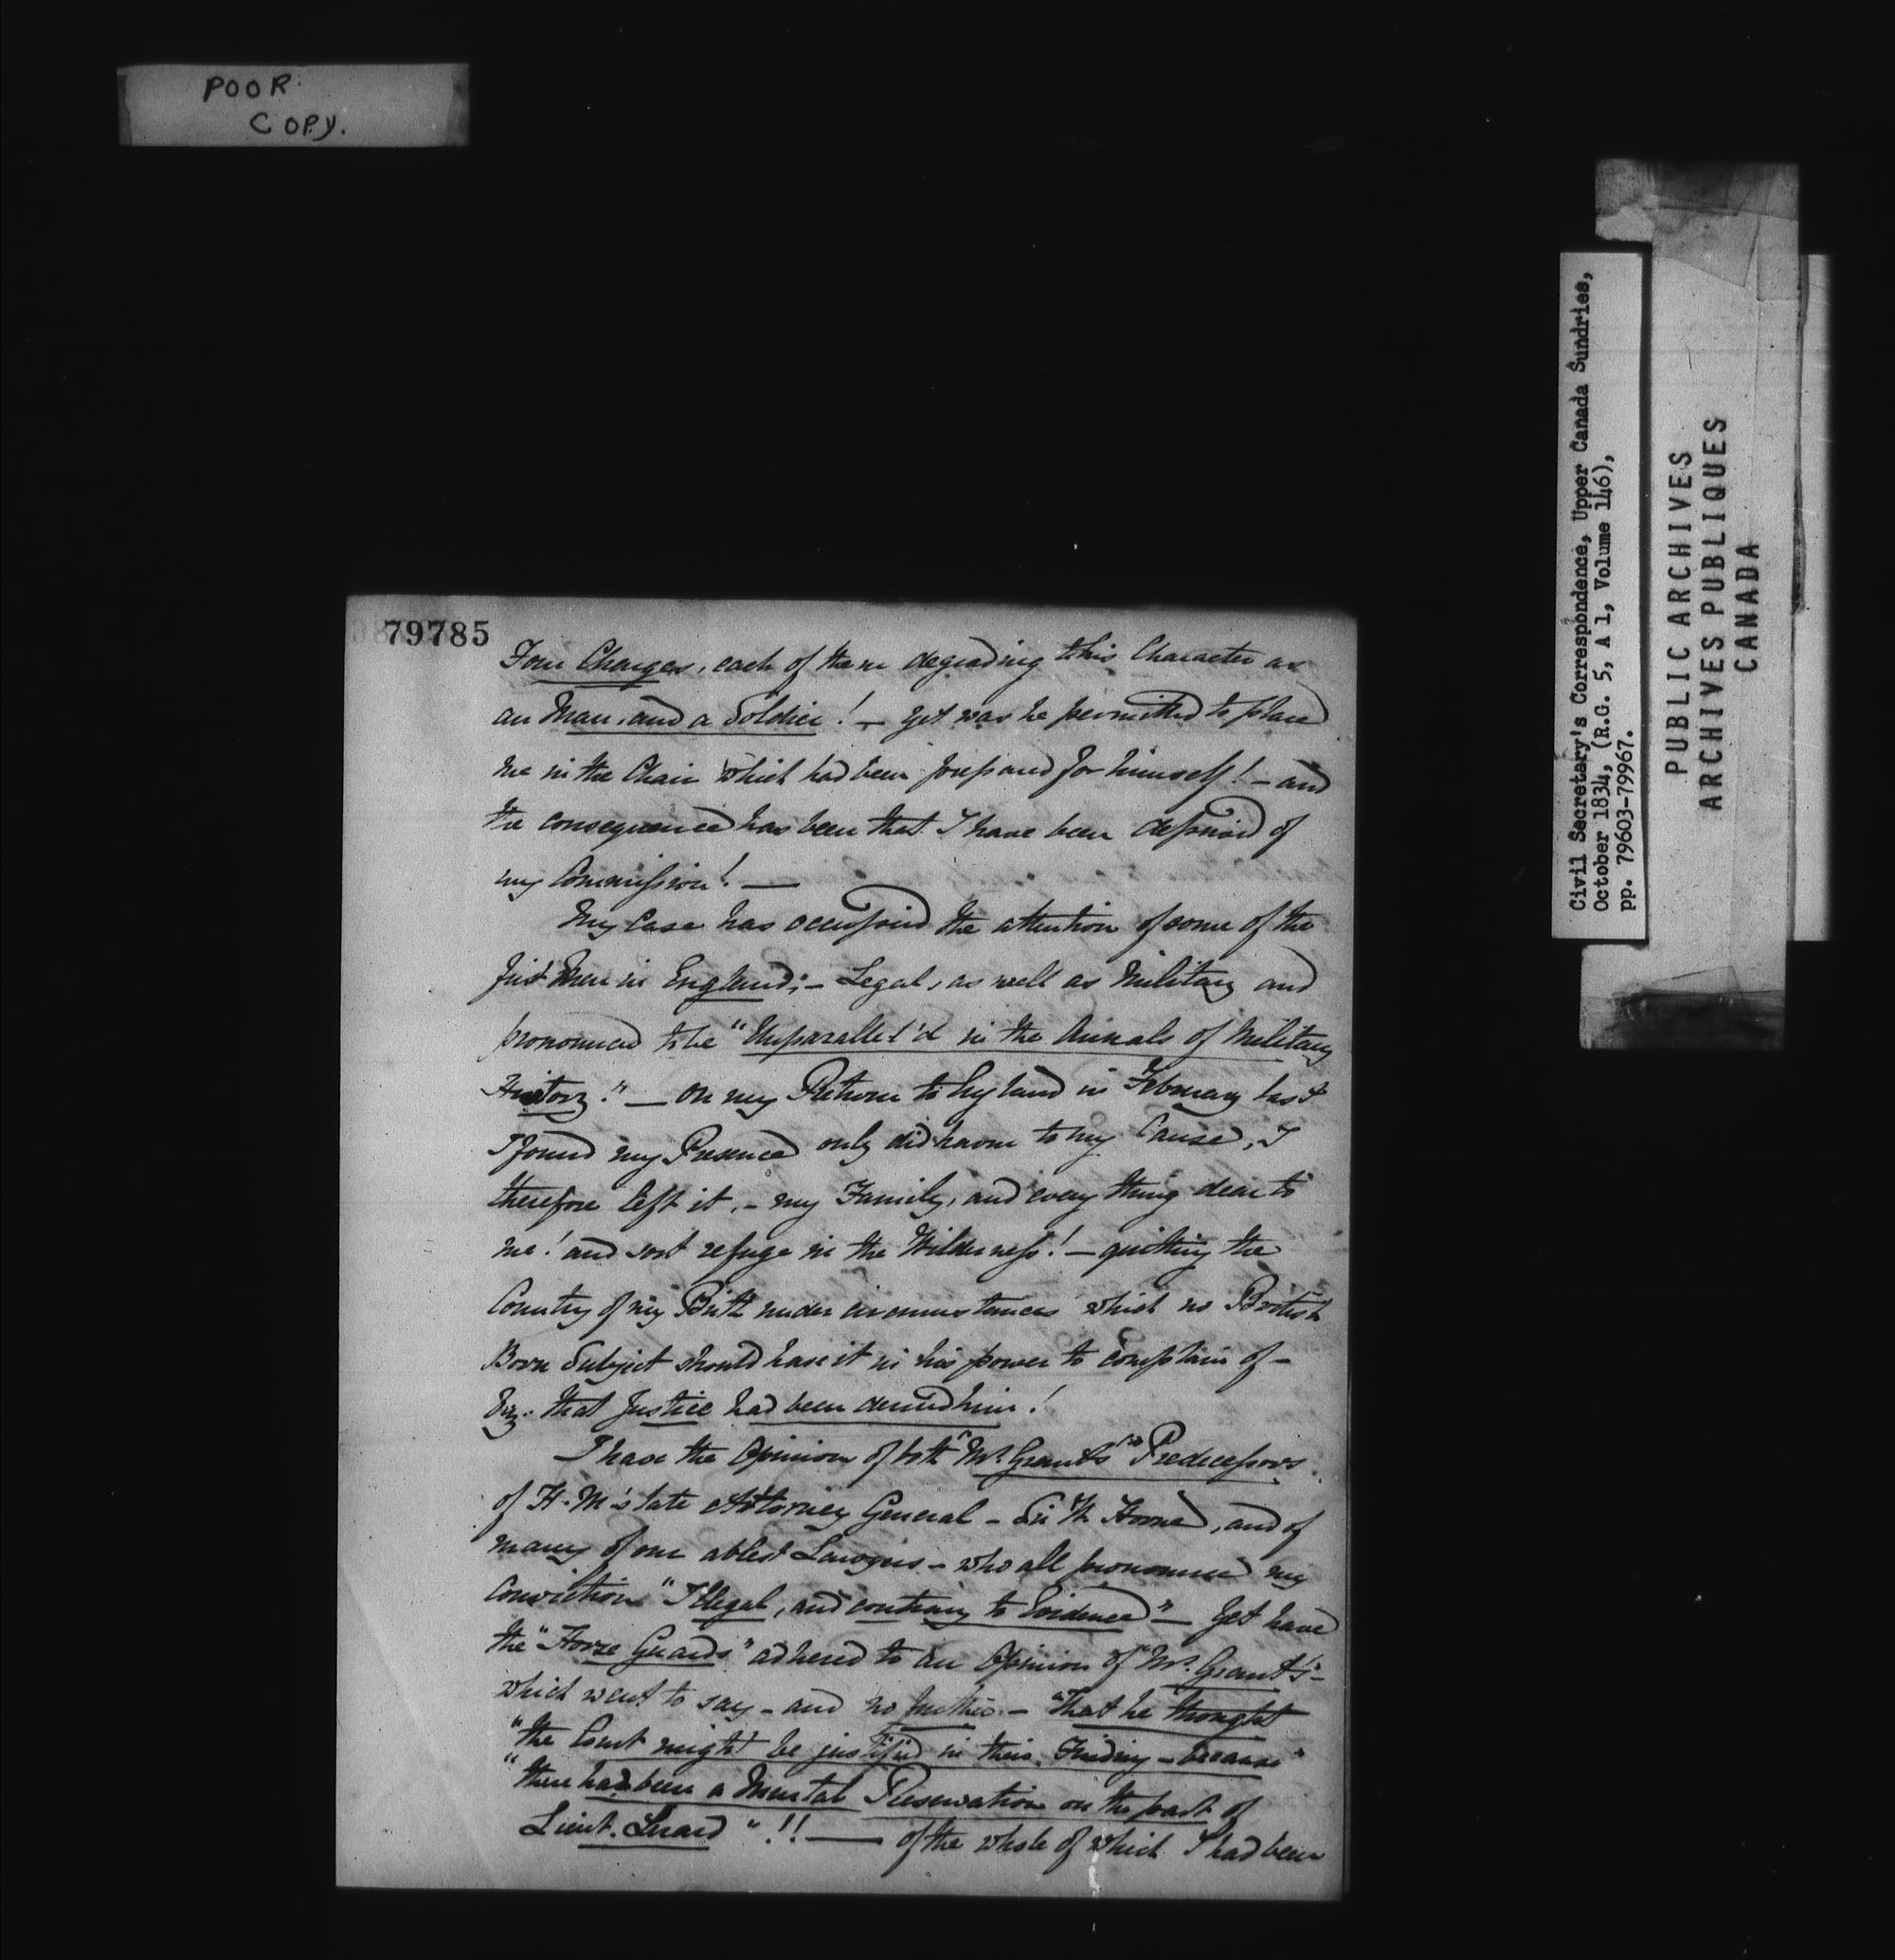 POOR
COPY.
79785
Four Charges, each of them degrading to his Character as
an Man, and a Soldier! — yet was he permitted to place
me in the Chair which had been prepared for himself! — and
the consequence has been that I have been deprived of
my Commission! —
My Case has occupied the attention of some of the
first Men in England; — Legal, as well as Military and
pronounced to be "Unparallel'd in the Annals of Military
History." — On my Return to England in February last
I found my Presence only did harm to my Cause, I
therefore left it, — my Family, and every thing dear to
me! and sort refuge in the Wilderness! — quitting the
Country of my Birth under circumstances which no British
Born Subject should have it in his power to complain of —
Viz. that Justice had been denied him!
I have the Opinion of both "Mr. Grant's" Predecessors
of H. M's late Attorney General — Sir W. Horne, and of
many of our ablest Lawyers — who all pronounce my
Conviction "Illegal, and contrary to Evidence" — Yet have
the "Horse Guards" adhered to an Opinion of "Mr. Grant's" —
which went to say — and no further — "That he thought
"the Court might be justified in their Finding — because"
"there had been a Mental Reservation on the part of
Lieut. " !! — of the whole of which I had been
Civil Secretary's Correspondence, Upper Canada Sundries,
October 1834, (R.G. 5, A 1, Volume 146),
pp. 79603-79967.
PUBLIC ARCHIVES
ARCHIVES PUBLIQUES
CANADA